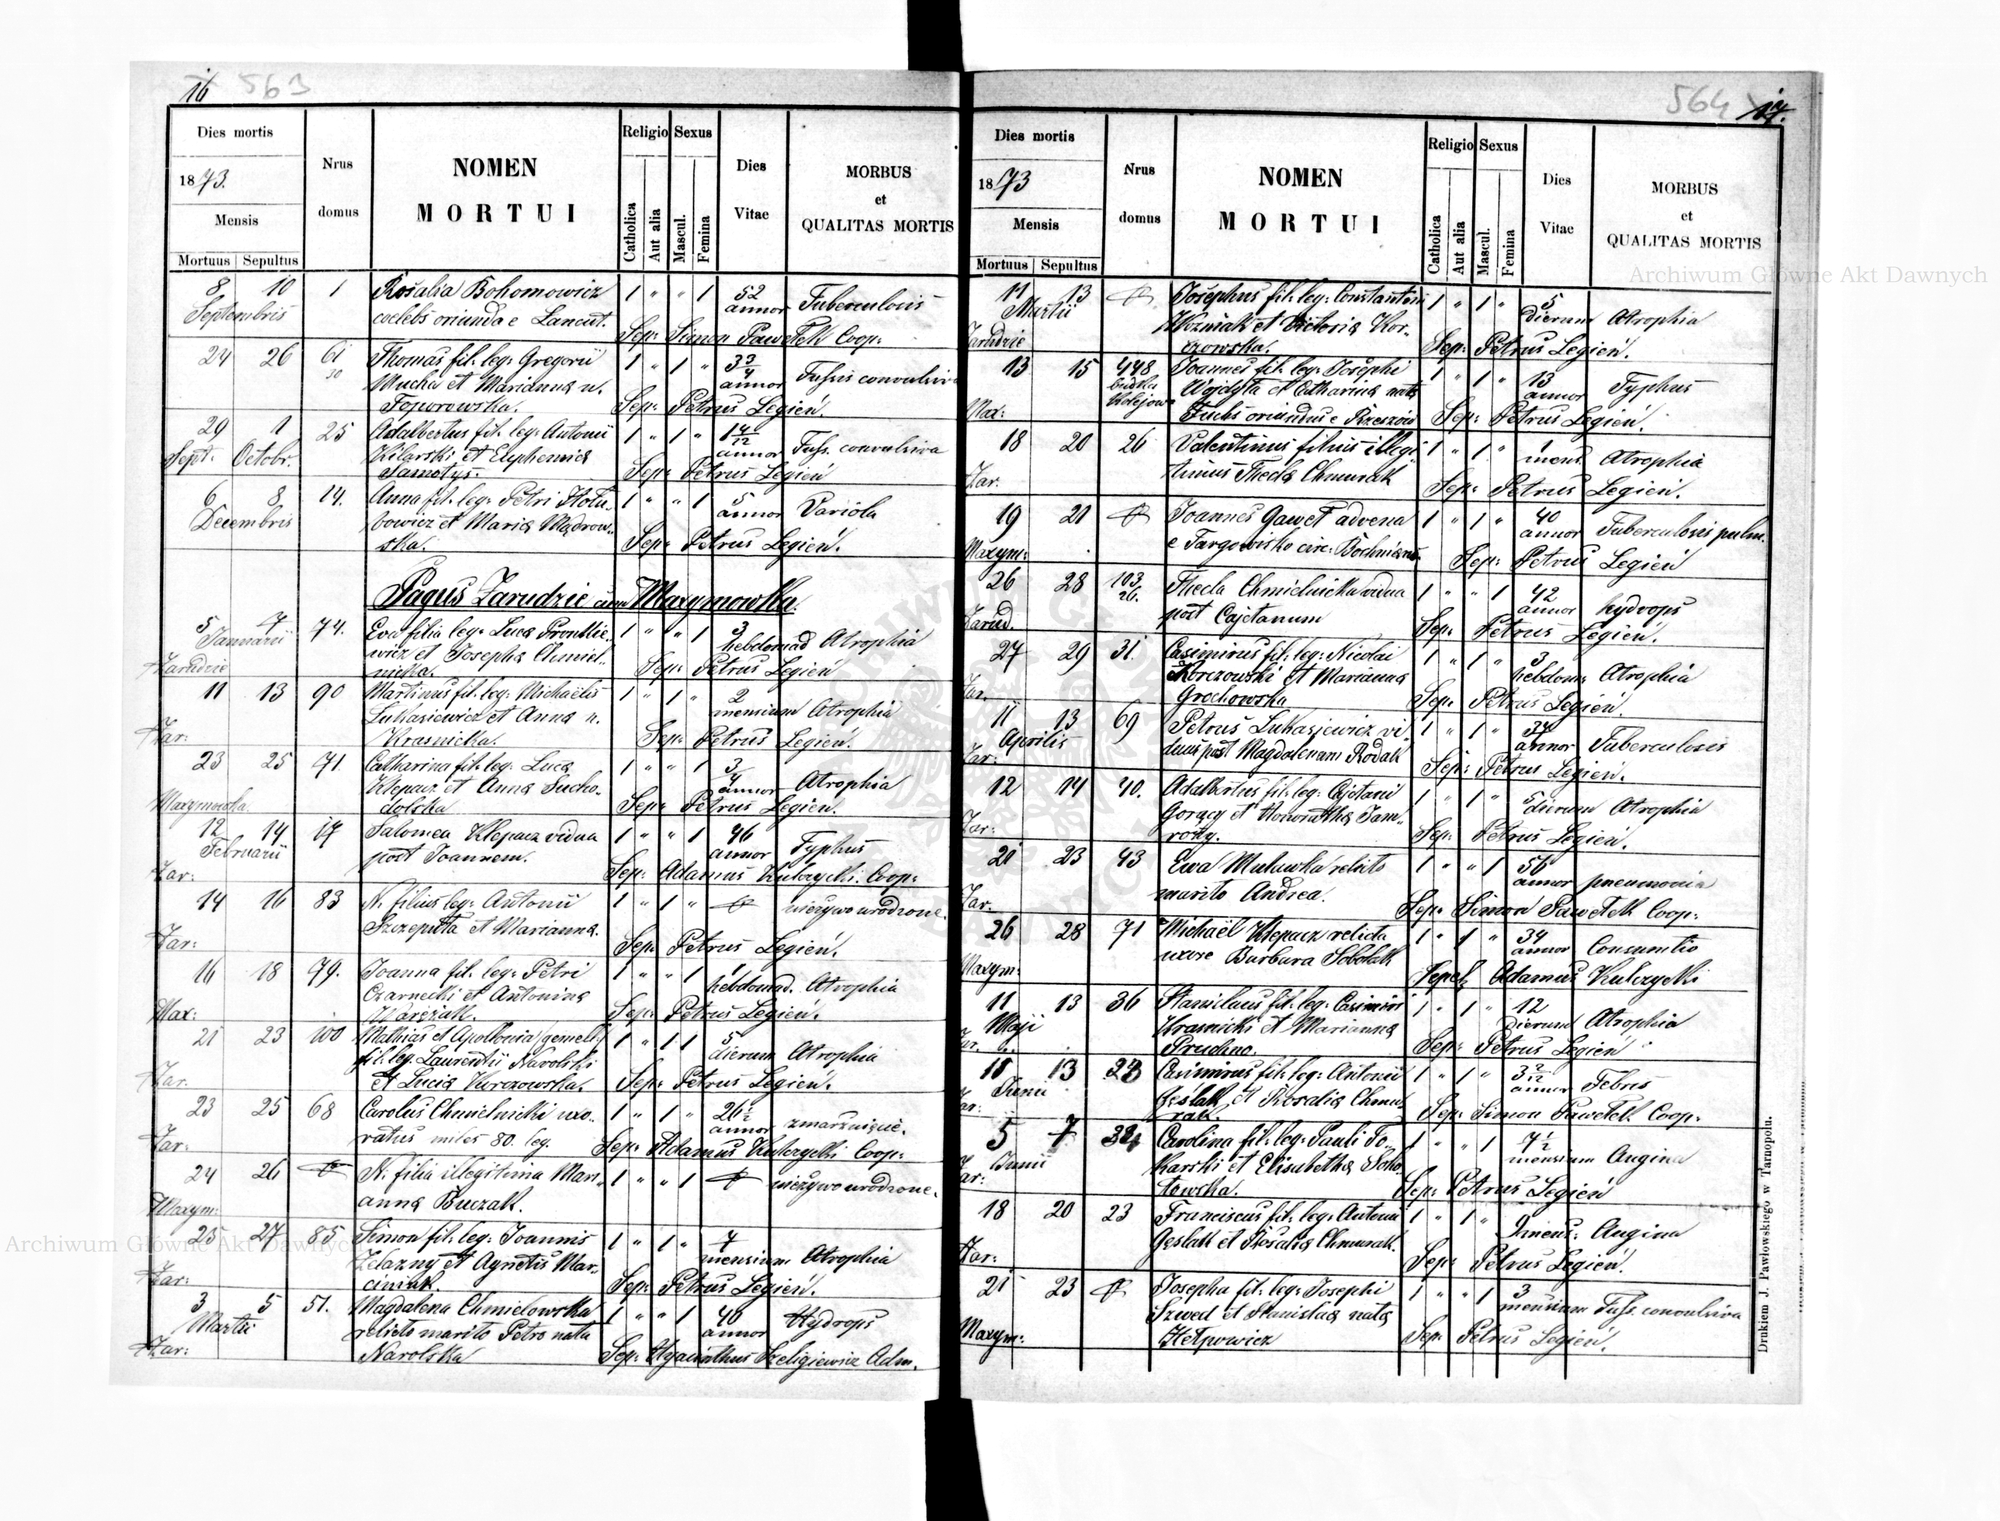 16 563
Dies mortis
1873.
Mensis
Mortuus Sepultus
Nrus
domus
NOMEN
MORTUI
Religio Sexus
Catholica
Aut alia
Mascul.
Femina
Dies
Vitae
MORBUS
et
QUALITAS MORTIS
8 10 1 Rosalia Bohomowicz 1 " " 1 52
Septembris coelebs oriunda e Lancut. annor Tuberculosis
Sep: Simon Pawełek Coop:
24 26 61 Thomas fil: leg: Gregorii 1 " 1 " 3 3/4
30 Mucha et Marianna n. annor Tussis convulsiva
Toporowska. Sep: Petrus Legień.
29 1 25 Adalbertus fil: leg: Antonii 1 " 1 " 1 4/12
Sept. Octobr. Kilarski et Euphemia annor Tuss. convulsiva
Sep: Petrus Legień
6 8 14. Anna fil: leg: Petri Hołu- 1 " " 1 5
Decembris bowicz et Maria Mądrow- annor Variola
ska. Sep: Petrus Legień.
Pagus Zarudzie cum Maxymowka.
5 7 74. Eva filia leg: Luca 1 " " 1 3
Januarii wicz et Josepha Chmiel- hebdomad Atrophia
Zarudzie nicka. Sep: Petrus Legień
11 13 90 Martinus fil: leg: Michaelis 1 " 1 " 2
Łukasiewicz et Anna n. mensium Atrophia
Zar: Krasnicka. Sep: Petrus Legień.
23 25 71. Catharina fil: leg: Luca 1 " " 1 3/4
Klepacz et Anna Sucho- annor Atrophia
Maxymowka dolska Sep: Petrus Legień.
12 14 17 Salomea Klepacz vidua 1 " " 1 46
Februarii post Joannem. annor Typhus
Zar: Sep: Adamus Kulczycki. Coop:
14 16 83 N. filius leg: Antonii 1 " 1 " nieżywo urodzone.
Szczeputa et Marianna.
Zar: Sep: Petrus Legień.
16 18 79. Joanna fil: leg: Petri 1 " " 1 1
Czarnecki et Antonina hebdomad. Atrophia
Max: Marczak. Sep: Petrus Legień.
21 23 100 Mathias et Apollonia (gemelli) 1 " 1 1 5
fil: leg: Laurentii Narolski dierum Atrophia
Zar. et Lucia Kurczowska. Sep: Petrus Legień.
23 25 68 Carolus Chmielnicki uxo- 1 " 1 " 26 1/2
ratus miles 80. leg. annor
Zar: Sep: Adamus Kulczycki Coop:
24 26 N. filia illegitima Mari- 1 " " 1 nieżywo urodzone.
Maxym: anna Buczak.
25 27 85 Simon fil: leg: Joannis 1 " 1 " 4
Żelazny et Agnetis Mar- mensium Atrophia
Zar: ciniak. Sep: Petrus Legień.
3 5 51. Magdalena Chmielowska 1 " " 1 40
Martii relicto marito Petro nata annor Hydrops
Zar: Narolska Sep: Hyacinthus Szeligiewicz Adm.
564 17.
Dies mortis
1873
Mensis
Mortuus Sepultus
Nrus
domus
NOMEN
MORTUI
Religio Sexus
Catholica
Aut alia
Mascul.
Femina
Dies
Vitae
MORBUS
et
QUALITAS MORTIS
11 13 Josephus fil: leg: Constantini 1 " 1 " 5
Martii Woźniak et Victoria Kor- dierum Atrophia
Zarudzie czowska. Sep: Petrus Legień.
13 15 448 Joannes fil: leg: Josephi 1 " 1 " 13
budka Wojdyta et Catharina nata annor Typhus
Max: Kolejowa Fuchs oriundus e Rzeszów Sep: Petrus Legień.
18 20 26 Valentinus filius illegi- 1 " 1 " 1
timus Thecla Chmurak mens. Atrophia
Zar. Sep: Petrus Legień.
19 21 Joannes Gaweł advena 1 " 1 " 40
e Targowisko circ: annor Tuberculosis pulm.
Maxym: Sep: Petrus Legień
26 28 103 Thecla Chmielnicka vidua 1 " " 1 42
26. post Cajetanum annor hydrops
Zarud. Sep: Petrus Legień.
27 29 31. Casimirus fil: leg: Nicolai 1 " 1 " 3
Korczowski et Marianna hebdom. Atrophia
Zar. Grochowska Sep: Petrus Legień.
11 13 69 Petrus Łukasiewicz vi- 1 " 1 " 34
Aprilis duus post Magdalenam Rodak annor Tuberculosis
Zar: Sep: Petrus Legień.
12 14 40. Adalbertus fil: leg: Cajetani 1 " 1 " 5
Gorący et Honoratha Jam- dierum Atrophia
Zar: roży. Sep: Petrus Legień.
21 23 43 Ewa Muławka relicto 1 " " 1 56
marito Andrea. annor pneumonia
Zar. Sep: Simon Pawełek Coop:
26 28 71 Michaël Klepacz relicta 1 " 1 " 34
uxore Barbara Sobolak annor Consumtio
Maxym: Sepel: Adamus Kulczycki
11 13 36 Stanislaus fil: leg: Casimiri 1 " 1 " 12
Maji Krasnicki et Marianna dierum Atrophia
Zar. Pruchno. Sep: Petrus Legień
11 13 23 Casimirus fil: leg: Antonii 1 " 1 " 3 2/12
Junii Geslak et Rosalia Chmu- annor Febris
Zar: rak. Sep: Simon Pawełek Coop:
5 7 Carolina fil: leg: Pauli To- 1 " " 1 7 1/2
Junii karski et Elisabetha Soko- mensium Angina
Zar: łowska. Sep: Petrus Legień
18 20 23 Franciscus fil: leg: Antonii 1 " 1 "
Geslak et Rosalia Chmurak. mens: Angina
Zar: Sep: Petrus Legień.
21 23 Josepha fil: leg: Josephi 1 " " 1 3
Szwed et Stanislaa nata mensium Tuss. convulsiva
Maxym: Sep: Petrus Legień.
Drukiem J. Pawłowskiego w Tarnopolu.
Archiwum Główne Akt Dawnych
Archiwum Główne Akt Dawnych
ARCHIWUM GŁÓWNE AKT DAWNYCH